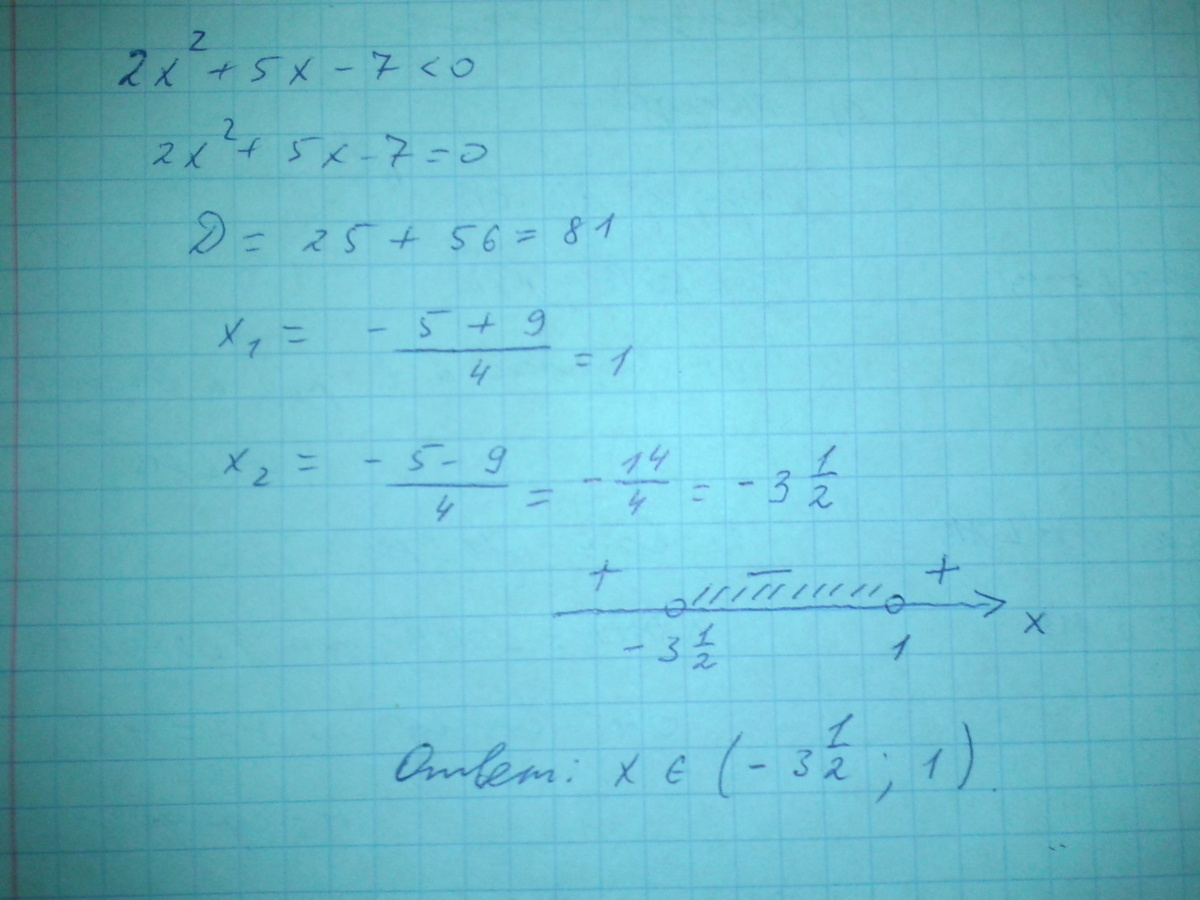 2x² + 5x - 7 < 0
2x² + 5x - 7 = 0
D = 25 + 56 = 81
x₁ = (- 5 + 9)/4 = 1
x₂ = (- 5 - 9)/4 = - 14/4 = - 3 1/2
+ — +
- 3 1/2 1 x
Ответ: x ∈ (- 3 1/2 ; 1).